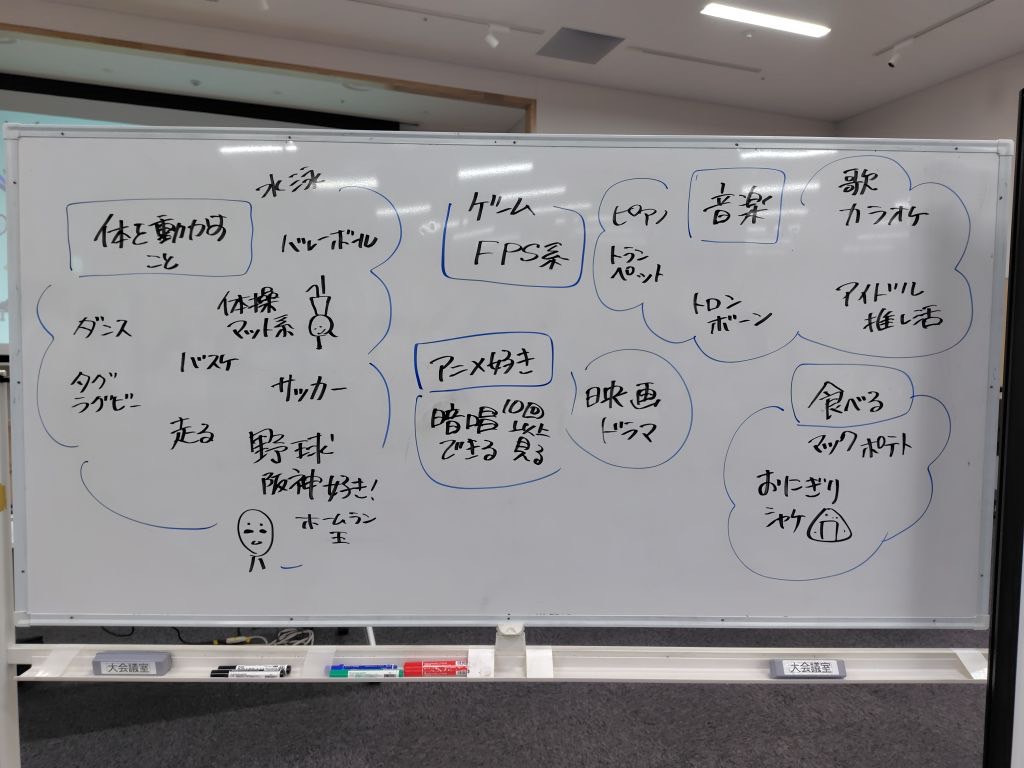 水泳
体を動かす
こと
バレーボール
体操
マット系
ダンス
バスケ
サッカー
タグ
ラグビー
走る
野球
阪神好き!
ホームラン
王
ゲーム
FPS系
アニメ好き
暗唱
できる
10回
以上
見る
映画
ドラマ
音楽
ピアノ
トラン
ペット
トロン
ボーン
歌
カラオケ
アイドル
推し活
食べる
マックポテト
おにぎり
シャケ
大会議室
大会議室